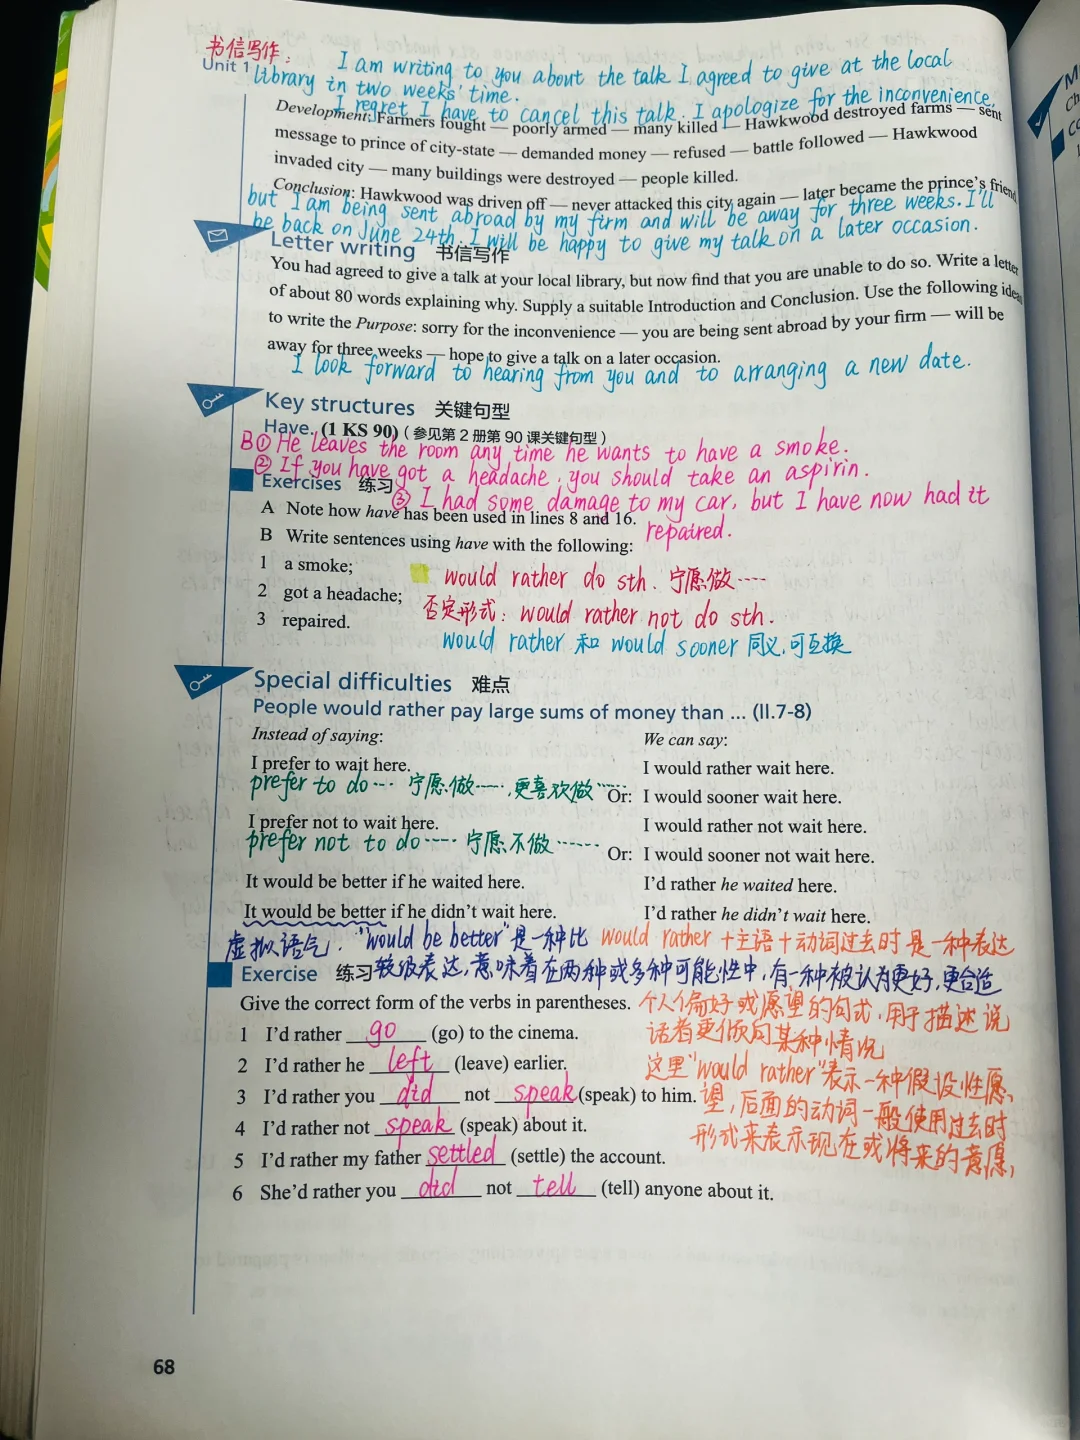 书信写作:
Unit 1
I am writing to you about the talk I agreed to give at the local
library in two weeks' time.
I regret I have to cancel this talk. I apologize for the inconvenience,
Development: Farmers fought — poorly armed — many killed — Hawkwood destroyed farms — sent
message to prince of city-state — demanded money — refused — battle followed — Hawkwood
invaded city — many buildings were destroyed — people killed.
Conclusion: Hawkwood was driven off — never attacked this city again — later became the prince's friend
but I am being sent abroad by my firm and will be away for three weeks. I'll
be back on June 24th. I will be happy to give my talk on a later occasion.
Letter writing 书信写作
You had agreed to give a talk at your local library, but now find that you are unable to do so. Write a letter
of about 80 words explaining why. Supply a suitable Introduction and Conclusion. Use the following ideas
to write the Purpose: sorry for the inconvenience — you are being sent abroad by your firm — will be
away for three weeks — hope to give a talk on a later occasion.
I look forward to hearing from you and to arranging a new date.
Key structures 关键句型
Have. (1 KS 90) (参见第2册第90课关键句型)
B① He leaves the room any time he wants to have a smoke.
② If you have got a headache, you should take an aspirin.
Exercises 练习
③ I had some damage to my car, but I have now had it
repaired.
A Note how have has been used in lines 8 and 16.
B Write sentences using have with the following:
1 a smoke;
2 got a headache;
3 repaired.
would rather do sth. 宁愿做……
否定形式: would rather not do sth.
would rather 和 would sooner 同义,可互换
Special difficulties 难点
People would rather pay large sums of money than ... (ll.7-8)
Instead of saying: We can say:
I prefer to wait here. I would rather wait here.
prefer to do… 宁愿做……,更喜欢做……
Or: I would sooner wait here.
I prefer not to wait here. I would rather not wait here.
prefer not to do…… 宁愿不做……
Or: I would sooner not wait here.
It would be better if he waited here. I'd rather he waited here.
It would be better if he didn't wait here. I'd rather he didn't wait here.
虚拟语气. "would be better"是一种比
较级表达,意味着在两种或多种可能性中,有一种被认为更好,更合适
would rather +主语+动词过去时 是一种表达
个人偏好或愿望的句式,用于描述说
话者更倾向某种情况
这里"would rather"表示一种假设性愿
望,后面的动词一般使用过去时
形式来表示现在或将来的意愿,
Exercise 练习
Give the correct form of the verbs in parentheses.
1 I'd rather go (go) to the cinema.
2 I'd rather he left (leave) earlier.
3 I'd rather you did not speak (speak) to him.
4 I'd rather not speak (speak) about it.
5 I'd rather my father settled (settle) the account.
6 She'd rather you did not tell (tell) anyone about it.
68